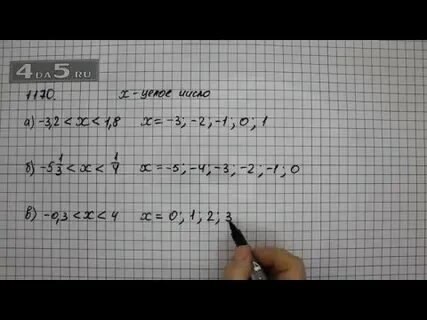 4DA5.RU
1170. x - целое число
а) -3,2 < x < 1,8 x = -3; -2; -1; 0; 1
б) -5 1/3 < x < 1/4 x = -5; -4; -3; -2; -1; 0
в) -0,3 < x < 4 x = 0; 1; 2; 3